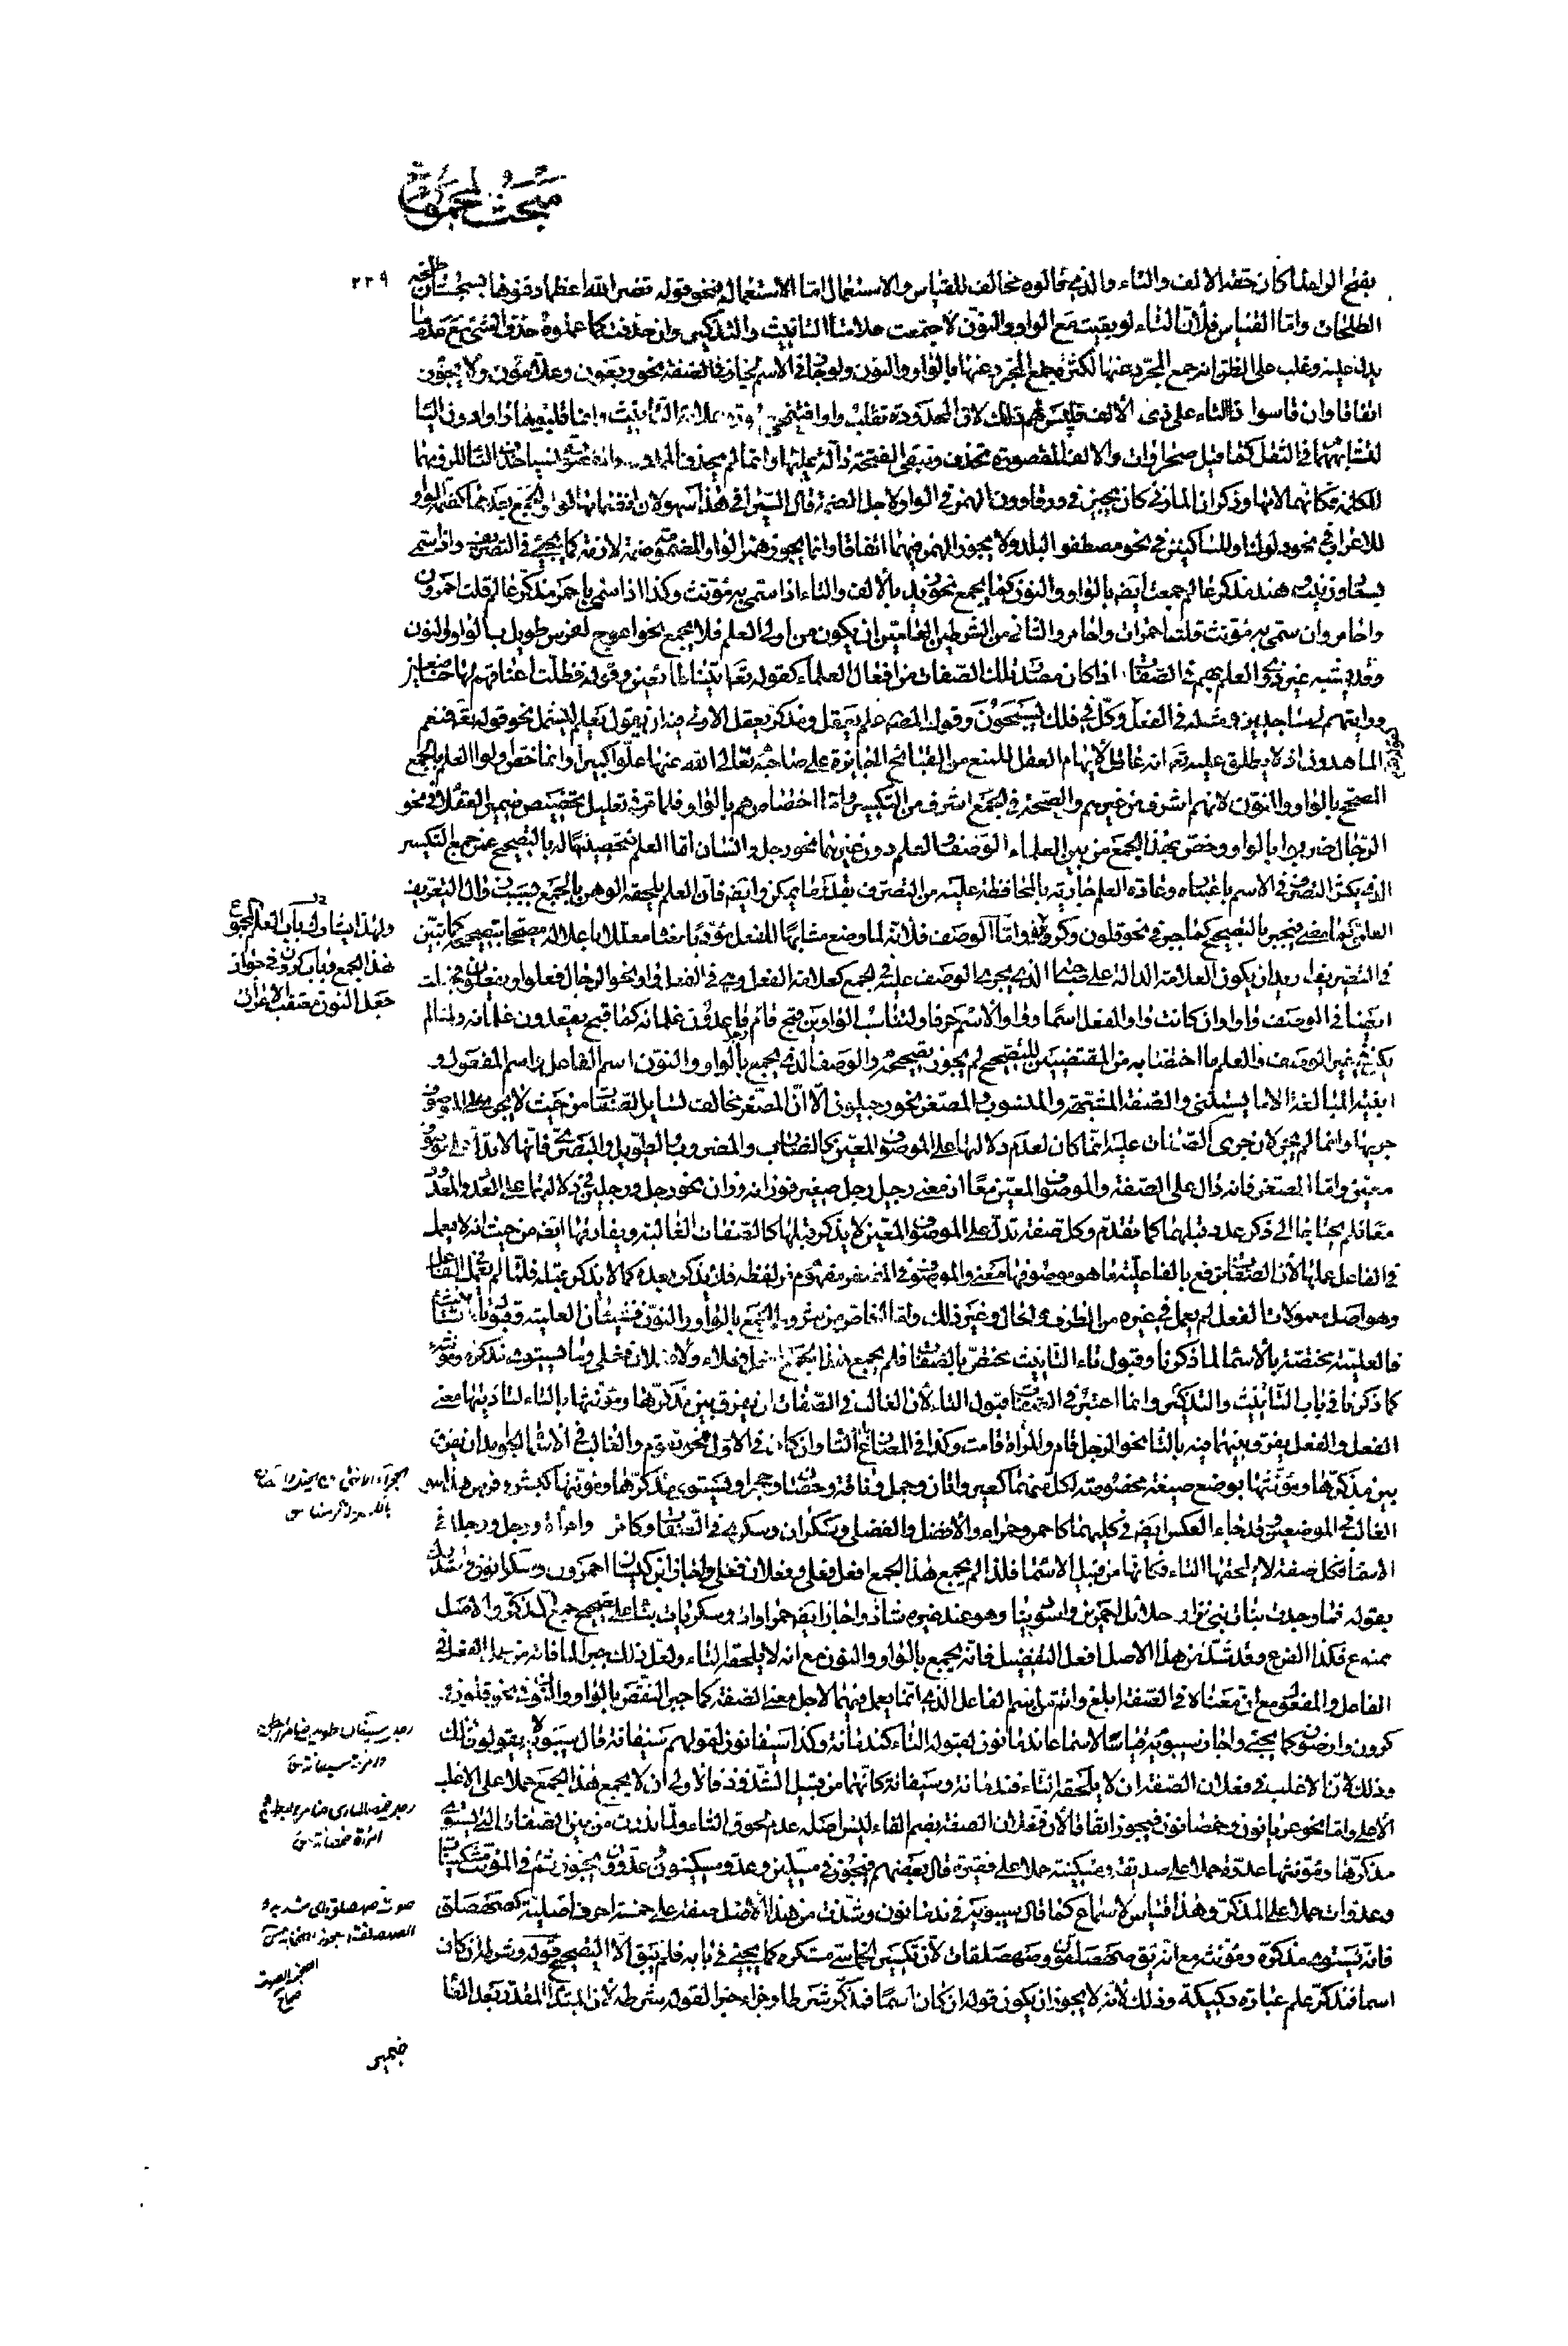 مبحث الجموع
٢٣٩
بفتح الراء لما كان حقه الالف والتاء والذى قالوه مخالف للقياس والاستعمال اما الاستعمال فنحو قوله نضر الله اعظما دفنوها بسجستان طلحة
الطلحات واما القياس فلان التاء لو بقيت مع الواو والنون لاجتمعت علامتا التانيث والتذكير وان حذفت كما عملوه حذف الشئ مع عدم ما
يدل عليه وغلب على الظن انه جمع المجرد عنها لكثرة جمع المجرد عنها بالواو والنون ولو جاز فى الاسم لجاز فى الصفة نحو ربعون وعلامون ولا يجوز
اتفاقا وان قاسوا ذا التاء على ذى الالف فليس لهم ذلك لان الممدودة تقلب واوا فتنمحى صورة علامة التانيث وانما قلبوها واوا دون الياء
لتشابههما فى الثقل كما قيل صحراوات والالف المقصورة تحذف وتبقى الفتحة دالة عليها وانما لم يحذف الممدود
للكلمة مكانهما لانها وذكر ان المازنى كان يجيز فى ورقاوون الهمز فى الواو لاجل الضمة قال السيرافى هذا سهو لان انضمامها لواو الجمع بعدها كضم الواو
للاعراب فى نحو دلوك او للساكنين فى نحو مصطفو البلد ولا يجوز الهمز فيهما اتفاقا وانما يجوز همز الواو المضمومة ضمة لازمة كما يجئ فى التصريف واذا سمى
بسعاد وزينب وهند مذكر عالم جمعت ايضا بالواو والنون كما يجمع نحو زيد بالالف والتاء اذا سمى به مؤنث وكذا اذا سمى باحمر مذكر عالم قلت احمرون
واحامر وان سمى به مؤنث قلت احمرات واحامر والثانى من الشرطين العامين ان يكون من اولى العلم فلا يجمع نحو اعوج لفرس طويل بالواو والنون
وقد يشبه غير ذوى العلم بهم فى الصفات اذا كان مصدر تلك الصفات من افعال العلماء كقوله تعالى اتينا طائعين وقوله فظلت اعناقهم لها خاضعين
ورايتهم لى ساجدين ومثله فى الفعل وكل فى فلك يسبحون وقول المصنف علم يعقل ومذكر يعقل الاولى فيه ان يقول يعلم ليشمل نحو قوله تعالى فنعم
الماهدون اذ لا يطلق عليه تعالى انه عاقل لايهام العقل للمنع من القبائح الجائزة على صاحبه تعالى الله عنها علوا كبيرا وانما اختص اولوا العلم بالجمع
الصحيح بالواو والنون لانهم اشرف من غيرهم والصحة فى الجمع اشرف من التكسير واما اختصاصهم بالواو فلما مر فى تعليل تخصيص ضمير العقلاء فى نحو
الرجال ضربوا بالواو وخص بهذا الجمع من بين العلماء الوصف والعلم دون غيرهما نحو رجل وانسان اما العلم فتحصينا له بالتصحيح عن جمع التكسير
الذى يكثر التصرف فى الاسم باعتباره وعادة العلم جارية بالمحافظة عليه من التصرف بقدر ما يمكن وايضا فان العلم يلحقه الوهن بالجمع بسبب زوال التعريف
العلمى كما مضى فيجبر بالتصحيح كما جبر فى نحو قلون وكرون واما الوصف فلانه لما وضع مشابها للفعل مؤديا معناه معللا باعلاله مصححا بتصحيحه كما تبين
فى التصريف اريد ان يكون العلامة الدالة على صاحبها الذى يجرى الوصف عليه فى الجمع كعلامة الفعل وهى فى الفعل واو نحو الرجال فعلوا ويفعلون فجعلت
ايضا فى الوصف واوا وان كانت واو الفعل اسما وواو الاسم حرفا ولتناسب الواوين قبح قام رجل قاعدون غلمانه كما قبح يقعدون غلمانه ولما لم
يكن فى غير الوصف والعلم ما اختصا به من المقتضيين للتصحيح لم يجوز تصحيحه والوصف الذى يجمع بالواو والنون اسم الفاعل واسم المفعول و
ابنية المبالغة الا ما يستثنى والصفة المشبهة والمنسوب والمصغر نحو رجيلون الا ان المصغر مخالف لسائر الصفات من حيث لا يجرى على الموصوف
جريها وانما لم يجر لان جرى الصفات عليه انما كان لعدم دلالتها على الموصوف المعين كالضارب والمضروب والطويل والبصرى فانها لا تدل على موصوف
معين واما المصغر فانه دال على الصفة والموصوف المعين معا اذ معنى رجيل رجل صغير فوزانه وزان نحو رجل ورجلين فى دلالتهما على العدد والمعدود
معا فلم يحتاجا الى ذكر عدد قبلهما كما تقدم وكل صفة تدل على الموصوف المعين لا يذكر قبلها كالصفات الغالبة ويفارقها ايضا من حيث انه لا يعمل
فى الفاعل عملها لان الصفات ترفع بالفاعلية ما هو موصوفها معنى والموصوف فى المصغر مفهوم من لفظه فلا يذكر بعده كما لا يذكر قبله فلما لم يعمل فى الفاعل
وهو اصل معمولات الفعل لم يعمل فى غيره من الظرف والحال وغير ذلك واما الخاص من شروط الجمع بالواو والنون فشيئان العلمية وقبول تاء التانيث
فالعلمية مختصة بالاسماء لما ذكرنا وقبول تاء التانيث مختص بالصفات فلم يجمع هذا الجمع افعل فعلاء وفعلان فعلى وما يستوى مذكره ومؤنثه
كما ذكرنا فى باب التانيث والتذكير وانما اعتبر فى الصفات قبول التاء لان الغالب فى الصفات ان يفرق بين مذكرها ومؤنثها بالتاء لتاديتها معنى
الفعل والفعل يفرق بينهما فيه بالتاء نحو الرجل قام والمراة قامت وكذا فى المضارع التاء وان كان فى الاول نحو تقوم والغالب فى الاسماء الجوامد ان يفرق
بين مذكرها ومؤنثها بوضع صيغة مخصوصة لكل منهما كعير واتان وجمل وناقة وحصان وحجر او يستوى مذكرها ومؤنثها كبشر وفرس هذا هو
الغالب فى الموضعين وقد جاء العكس ايضا فى كليهما كاحمر وحمراء والافضل والفضلى وسكران وسكرى فى الصفات وكامرء وامراة ورجل ورجلة فى
الاسماء فكل صفة لا يلحقها التاء فكانها من قبيل الاسماء فلذا لم يجمع هذا الجمع افعل فعلاء وفعلان فعلى واجاز ابن كيسان احمرون وسكرانون واستدل
بقوله فما وجدت بنات بنى نزار حلائل احمرين واسودينا وهو عند غيره شاذ واجاز ايضا حمراوات وسكريات بناء على تصحيح جمع المذكر والاصل
ممنوع فكذا الفرع وقد شذ من هذا الاصل افعل التفضيل فانه يجمع بالواو والنون مع انه لا يلحقه التاء ولعل ذلك جبرا لما فاته من عمل الفعل فى
الفاعل والمفعول مع ان معناه فى الصفة ابلغ واتم من اسم الفاعل الذى انما يعمل فيهما لاجل معنى الصفة كما جبر النقص بالواو والنون فى نحو قلون و
كرون وارضون كما يجئ واجاز سيبويه قياسا لا سماعا ندمانون لقبوله التاء كندمانة وكذا سيفانون لقولهم سيفانة قال سيبويه لا يقولون ذلك
وذلك لان الاغلب فى فعلان الصفة ان لا يلحقه التاء فندمانة وسيفانة كانهما من قبيل الشذوذ فالاولى ان لا يجمع هذا الجمع حملا على الاغلب
الاعلى واما نحو عريانون وخمصانون فيجوز اتفاقا لان فعلان الصفة بضم الفاء ليس اصله عدم لحوق التاء ولما ندرت من بين الصفات التى يستوى
مذكرها ومؤنثها عدوة حملا على صديقة ومسكينة حملا على فقيرة قال بعضهم فيجوز فى مسكين وعدو مسكينون وعدوون فيجوز ثم فى المؤنث مسكينات
وعدوات حملا على المذكر وهذا قياس لا سماع كما قال سيبويه فى ندمانون وشذت من هذا الاصل صفة على خمسة احرف اصلية كصهصلق
فانه يستوى مذكره ومؤنثه مع انه يق صهصلقون وصهصلقات لان تكسير الخماسى مستكره كما يجئ فى بابه فلم يبق الا التصحيح قوله وشرطه ان كان
اسما فمذكر علم عبارة ركيكة وذلك لانه لا يجوز ان يكون قوله ان كان اسما فمذكر شرطا وجزاء خبرا لقوله شرطه لان المبتدا المقدر بعد الفاء
هذا الجمع
جعل النون معتقب الاعراب
ضمير